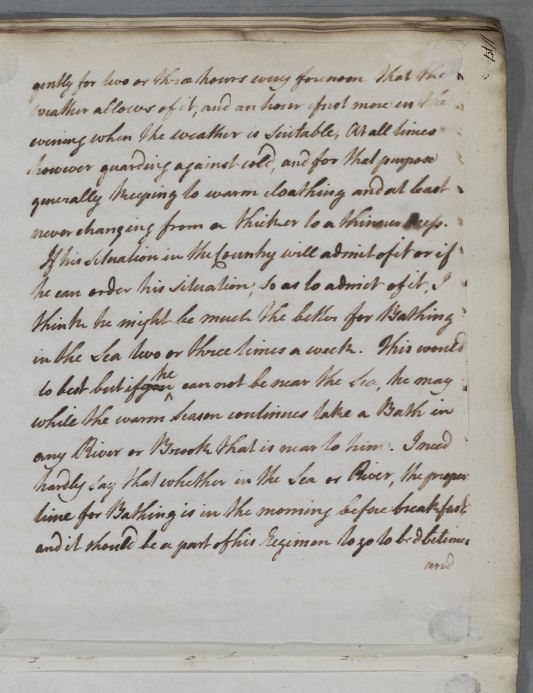 gently for two or three hours every forenoon that the
weather allows of it, and an hour just more in the
evening when the weather is suitable, At all times
however guarding against cold, and for that purpose
generally keeping to warm cloathing and at least
never changing from a thicker to a thinner Dress.
If his situation in the Country will admit of it or if
he can order his situation, so as to admit of it, I
think he might be much the better for Bathing
in the Sea two or three times a week. This would
be best but if he can not be near the Sea, he may
while the warm Season continues take a Bath in
any River or Brook that is near to him. I need
hardly say that whether in the Sea or River, the proper
time for Bathing is in the morning before breakfast
and it should be a part of his Regimen to go to bed betimes
and